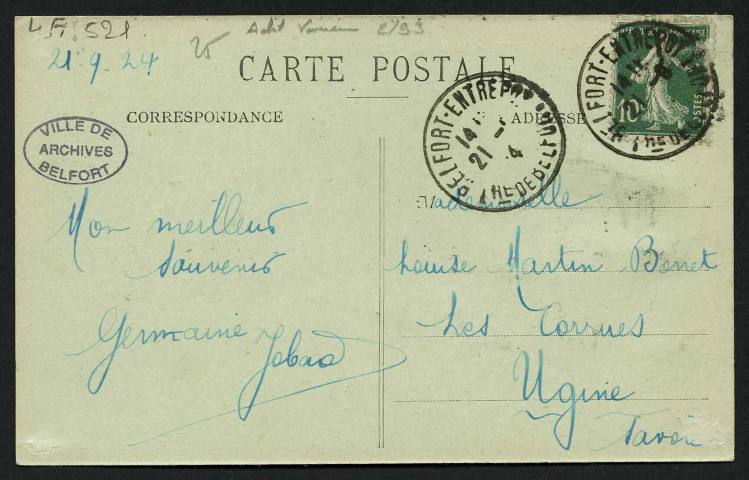 4 Fi 521
21.9.24
25
CARTE POSTALE
CORRESPONDANCE
ADRESSE
VILLE DE
ARCHIVES
BELFORT
BELFORT-ENTREPOT
14
21
BELFORT-ENTREPOT
14
21
10
POSTES
Mon meilleur
souvenir
Germaine
Mademoiselle
Louise Martin Bonnet
Les Corrues
Ugine
Savoie